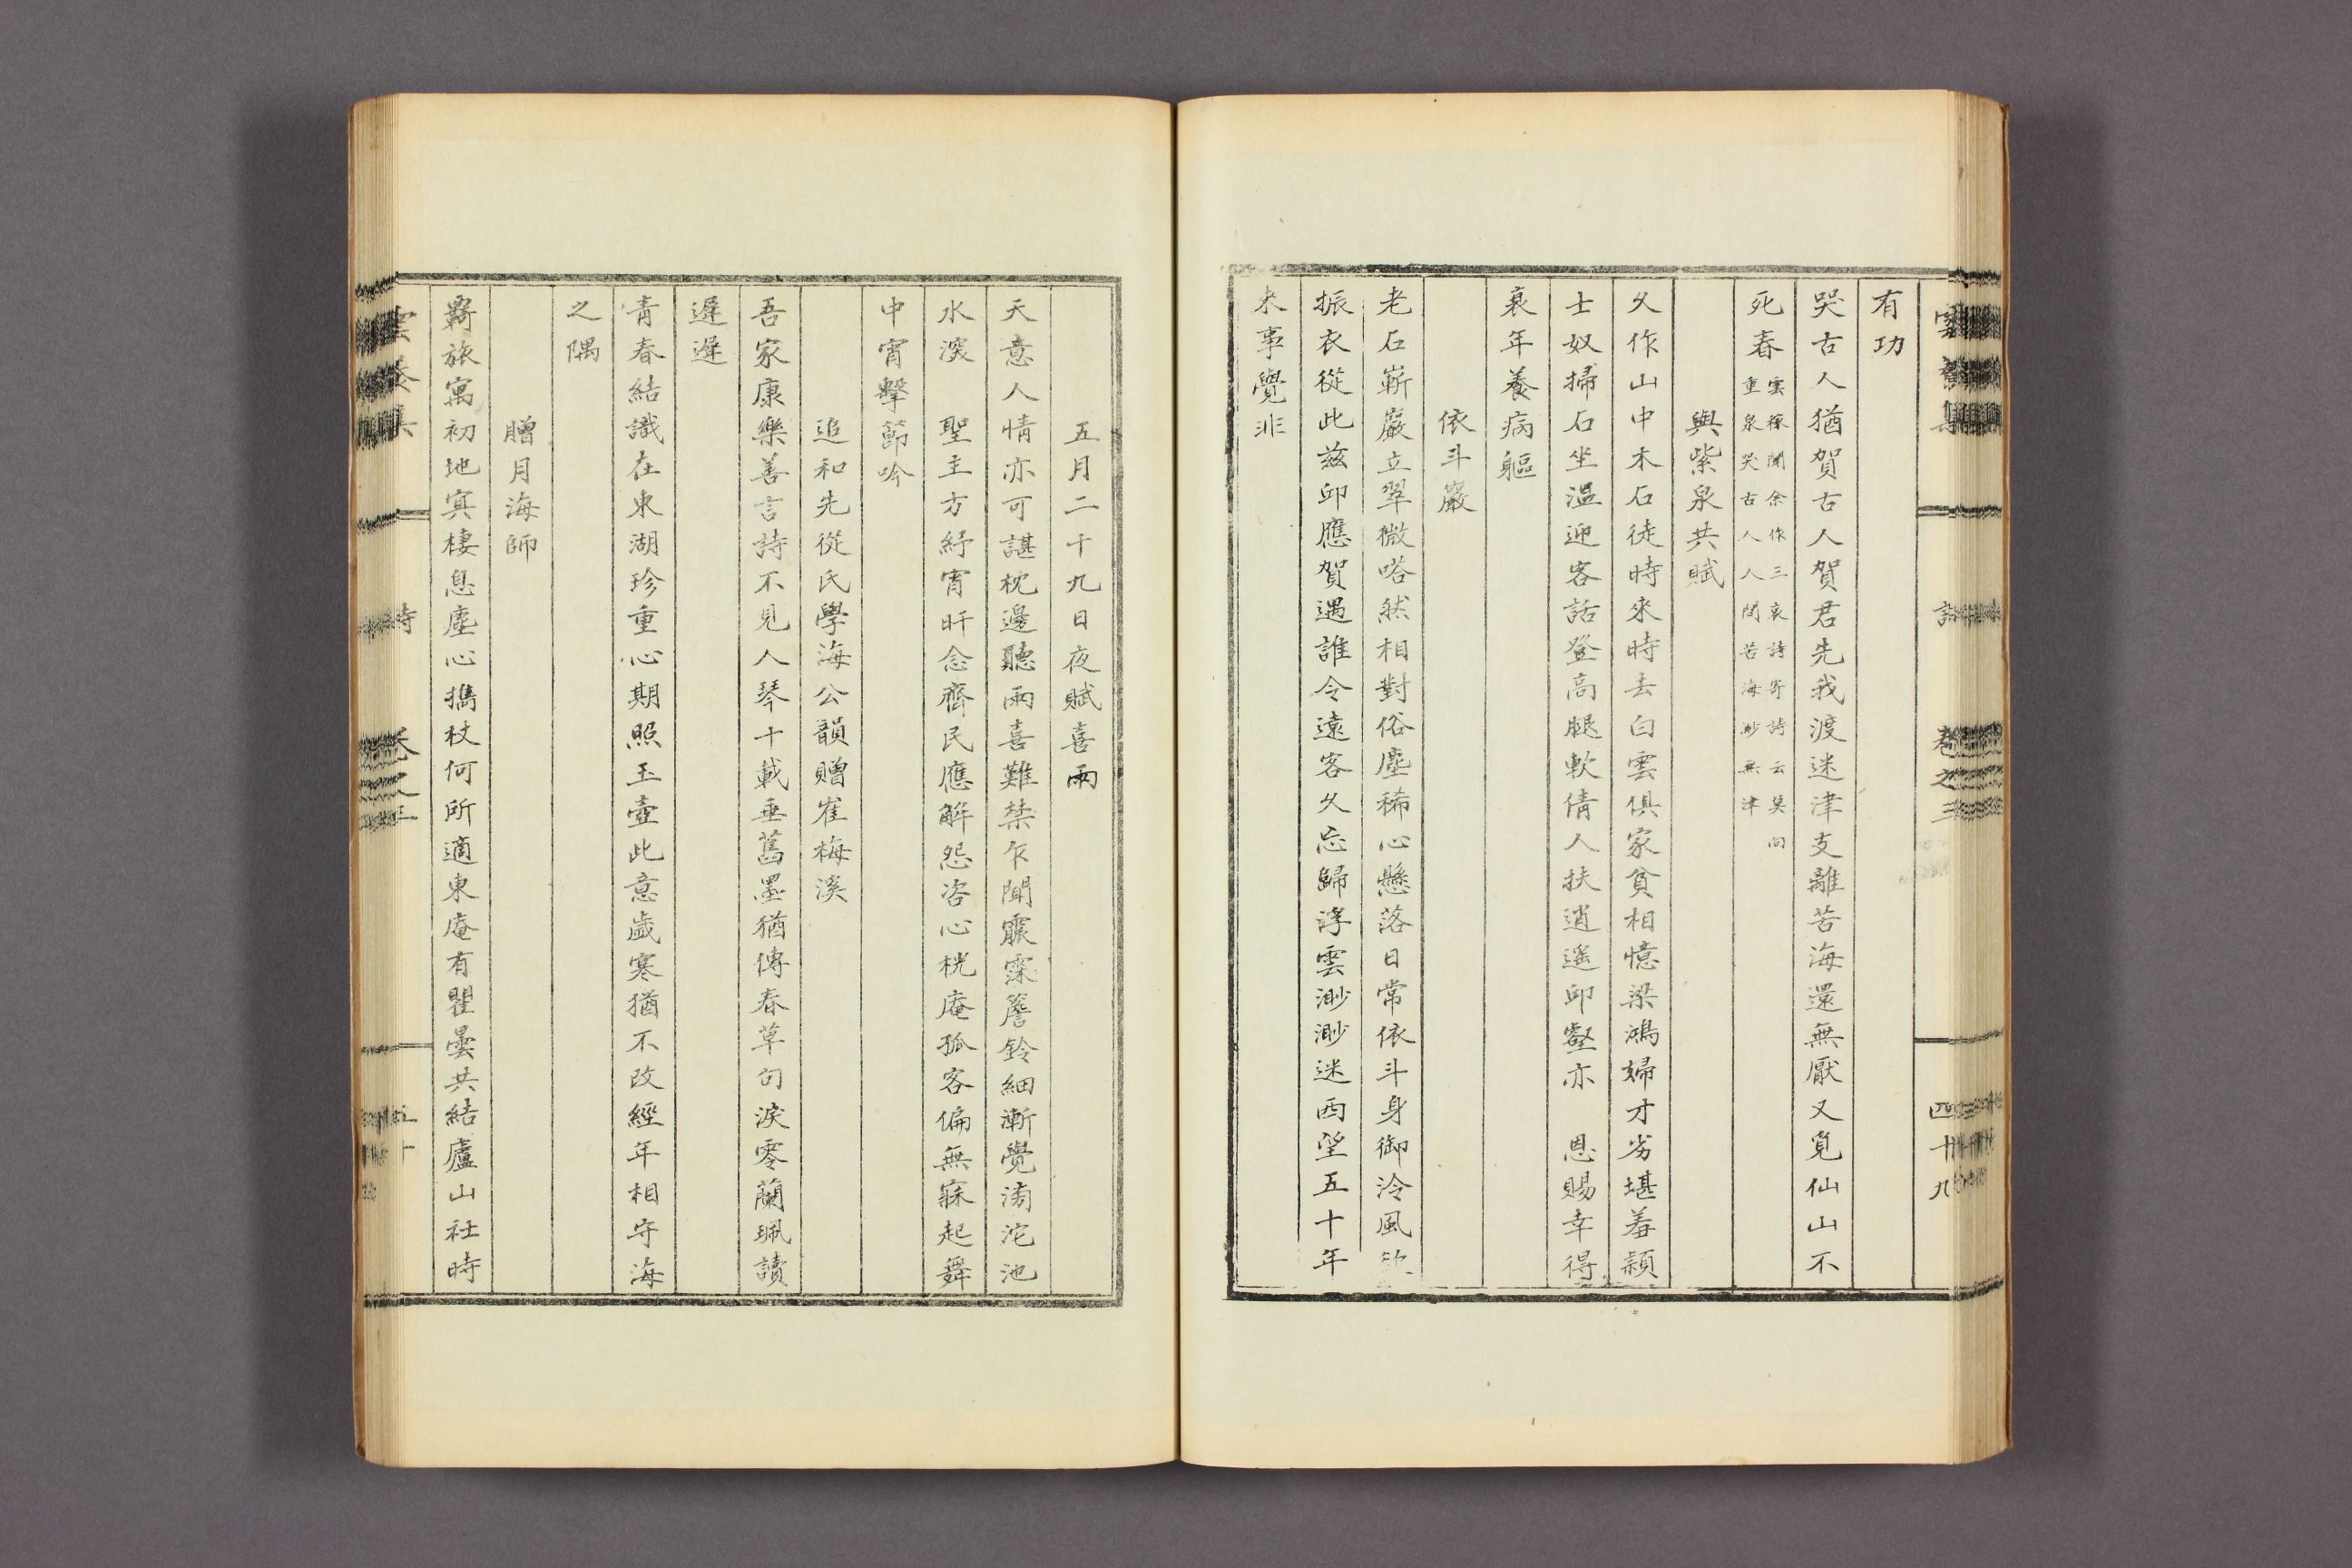 有功
哭古人猶賀古人賀君先我渡迷津支離苦海還無厭又覓仙山不
死春雲稼聞余作三哀詩寄詩云莫向
重泉哭古人人間苦海渺無津
與紫泉共賦
久作山中木石徒時來時去白雲俱家貧相憶梁鴻婦才劣堪羞穎
士奴掃石坐溫迎客話登高腿軟倩人扶逍遙邱壑亦 恩賜幸得
衰年養病軀
依斗巖
老石嶄巖立翠微嗒然相對俗塵稀心懸落日常依斗身御泠風欲
振衣從此茲邱應賀遇誰令遠客久忘歸浮雲渺渺迷西望五十年
來事覺非
卷之三
四十九
五月二十九日夜賦喜雨
天意人情亦可諶枕邊聽雨喜難禁乍聞霢霂簷鈴細漸覺滂沱池
水深 聖主方紓宵旰念齊民應解怨咨心桄庵孤客偏無寐起舞
中宵擊節吟
追和先從氏學海公韻贈崔梅溪
吾家康樂善言詩不見人琴十載垂舊墨猶傳春草句淚零蘭珮讀
遲遲
青春結識在東湖珍重心期照玉壺此意歲寒猶不改經年相守海
之隅
贈月海師
羇旅寓初地寘棲息塵心攜杖何所適東庵有瞿曇共結廬山社時